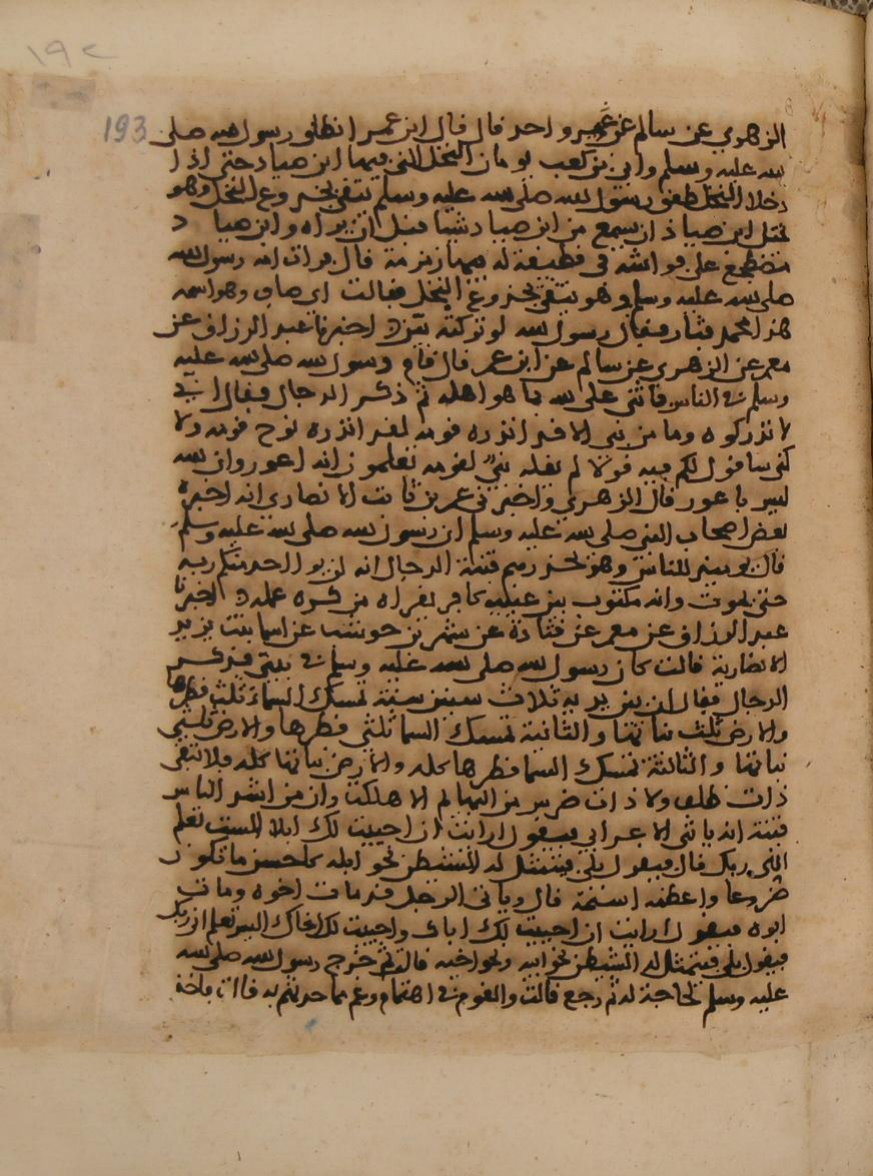 ١٩٢
193
الزهري عن سالم عن غير واحد قال قال ابن عمر انطلق رسول الله صلى
الله عليه وسلم وابي بن كعب يومان النخل التي فيها ابن صياد حتى اذا
دخلا النخل طفق رسول الله صلى الله عليه وسلم يتقي بجذوع النخل وهو
يختل ابن صياد ان يسمع من ابن صياد شيا قبل ان يراه وابن صياد
مضطجع على فراشه في قطيفة له فيها زمزمة قال فرات امه رسول الله
صلى الله عليه وسلم وهو يتقي بجذوع النخل فقالت اي صاف وهو اسمه
هذا محمد فثار فقال رسول الله لو تركته بين اخبرنا عبد الرزاق عن
معمر عن الزهري عن سالم عن ابن عمر قال قام رسول الله صلى الله عليه
وسلم في الناس فاثنى على الله بما هو اهله ثم ذكر الدجال فقال اني
لانذركوه وما من نبي الا قد انذره قومه لقد انذره نوح قومه ولا
كني ساقول لكم فيه قولا لم يقله نبي لقومه تعلمون انه اعور وان الله
ليس باعور قال الزهري واخبرني عمر بن ثابت الانصاري انه اخبره
بعض اصحاب النبي صلى الله عليه وسلم ان رسول الله صلى الله عليه وسلم
قال يوميذ للناس وهو يحذرهم فتنة الدجال انه لن يرا احد منكم ربه
حتى يموت وانه مكتوب بين عينيه كافر يقراه من كره عمله اخبرنا
عبد الرزاق عن معمر عن قتادة عن شهر بن حوشب عن اسما بنت يزيد
الانصارية قالت كان رسول الله صلى الله عليه وسلم في بيتي فذكر
الدجال فقال ان بين يديه ثلاث سنين سنة تمسك السماء ثلث قطرها
والارض ثلث نباتها والثانية تمسك السما ثلثي قطرها والارض ثلثي
نباتها والثالثة تمسك السما قطرها كله والارض نباتها كله فلا تبقى
ذات ظلف ولا ذات ضرس من البهايم الا هلكت وان من اشد الناس
فتنة انه ياتي الاعرابي فيقول ارايت ان احييت لك ابلك الست تعلم
اني ربك قال فيقول بلى فيتمثل له الشيطن نحو ابله كاحسن ما تكون
ضروعا واعظمه اسنمة قال وياتي الرجل قد مات اخوه ومات
ابوه فيقول ارايت ان احييت لك اباك واحييت لك اخاك اليس تعلم اني ربك
فيقول بلى فيتمثل له الشيطن نحو ابيه ونحو اخيه قالت ثم خرج رسول الله صلى الله
عليه وسلم لحاجة له ثم رجع قالت والقوم في اهتمام وغم مما حدثهم به قالت فاخذ